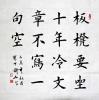 板櫈要坐
十年冷文
章不寫一
句空